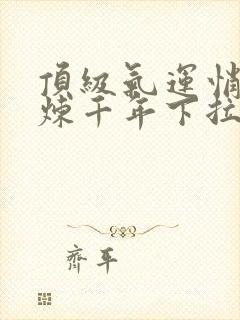 頂級氣運悄
煉千年下拉
齊平